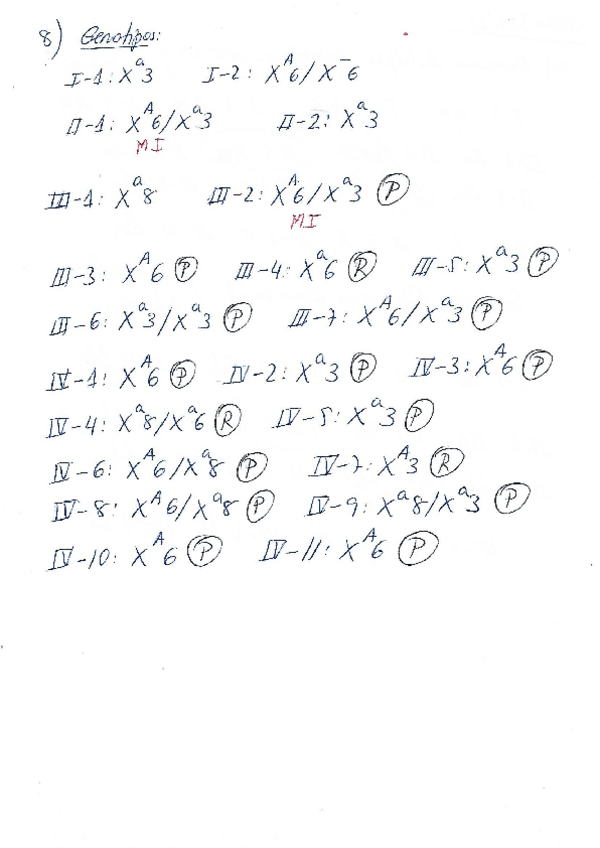 8) Genotipos:
I-1: Xᵃ3 I-2: Xᴬ6/X⁻6
II-1: Xᴬ6/Xᵃ3 II-2: Xᵃ3
MI
III-1: Xᵃ8 III-2: Xᴬ6/Xᵃ3 P
MI
III-3: Xᴬ6 P III-4: Xᵃ6 R III-5: Xᵃ3 P
III-6: Xᵃ3/Xᵃ3 P III-7: Xᴬ6/Xᵃ3 P
IV-1: Xᴬ6 P IV-2: Xᵃ3 P IV-3: Xᴬ6 P
IV-4: Xᵃ8/Xᵃ6 R IV-5: Xᵃ3 P
IV-6: Xᴬ6/Xᵃ8 P IV-7: Xᴬ3 R
IV-8: Xᴬ6/Xᵃ8 P IV-9: Xᵃ8/Xᵃ3 P
IV-10: Xᴬ6 P IV-11: Xᴬ6 P